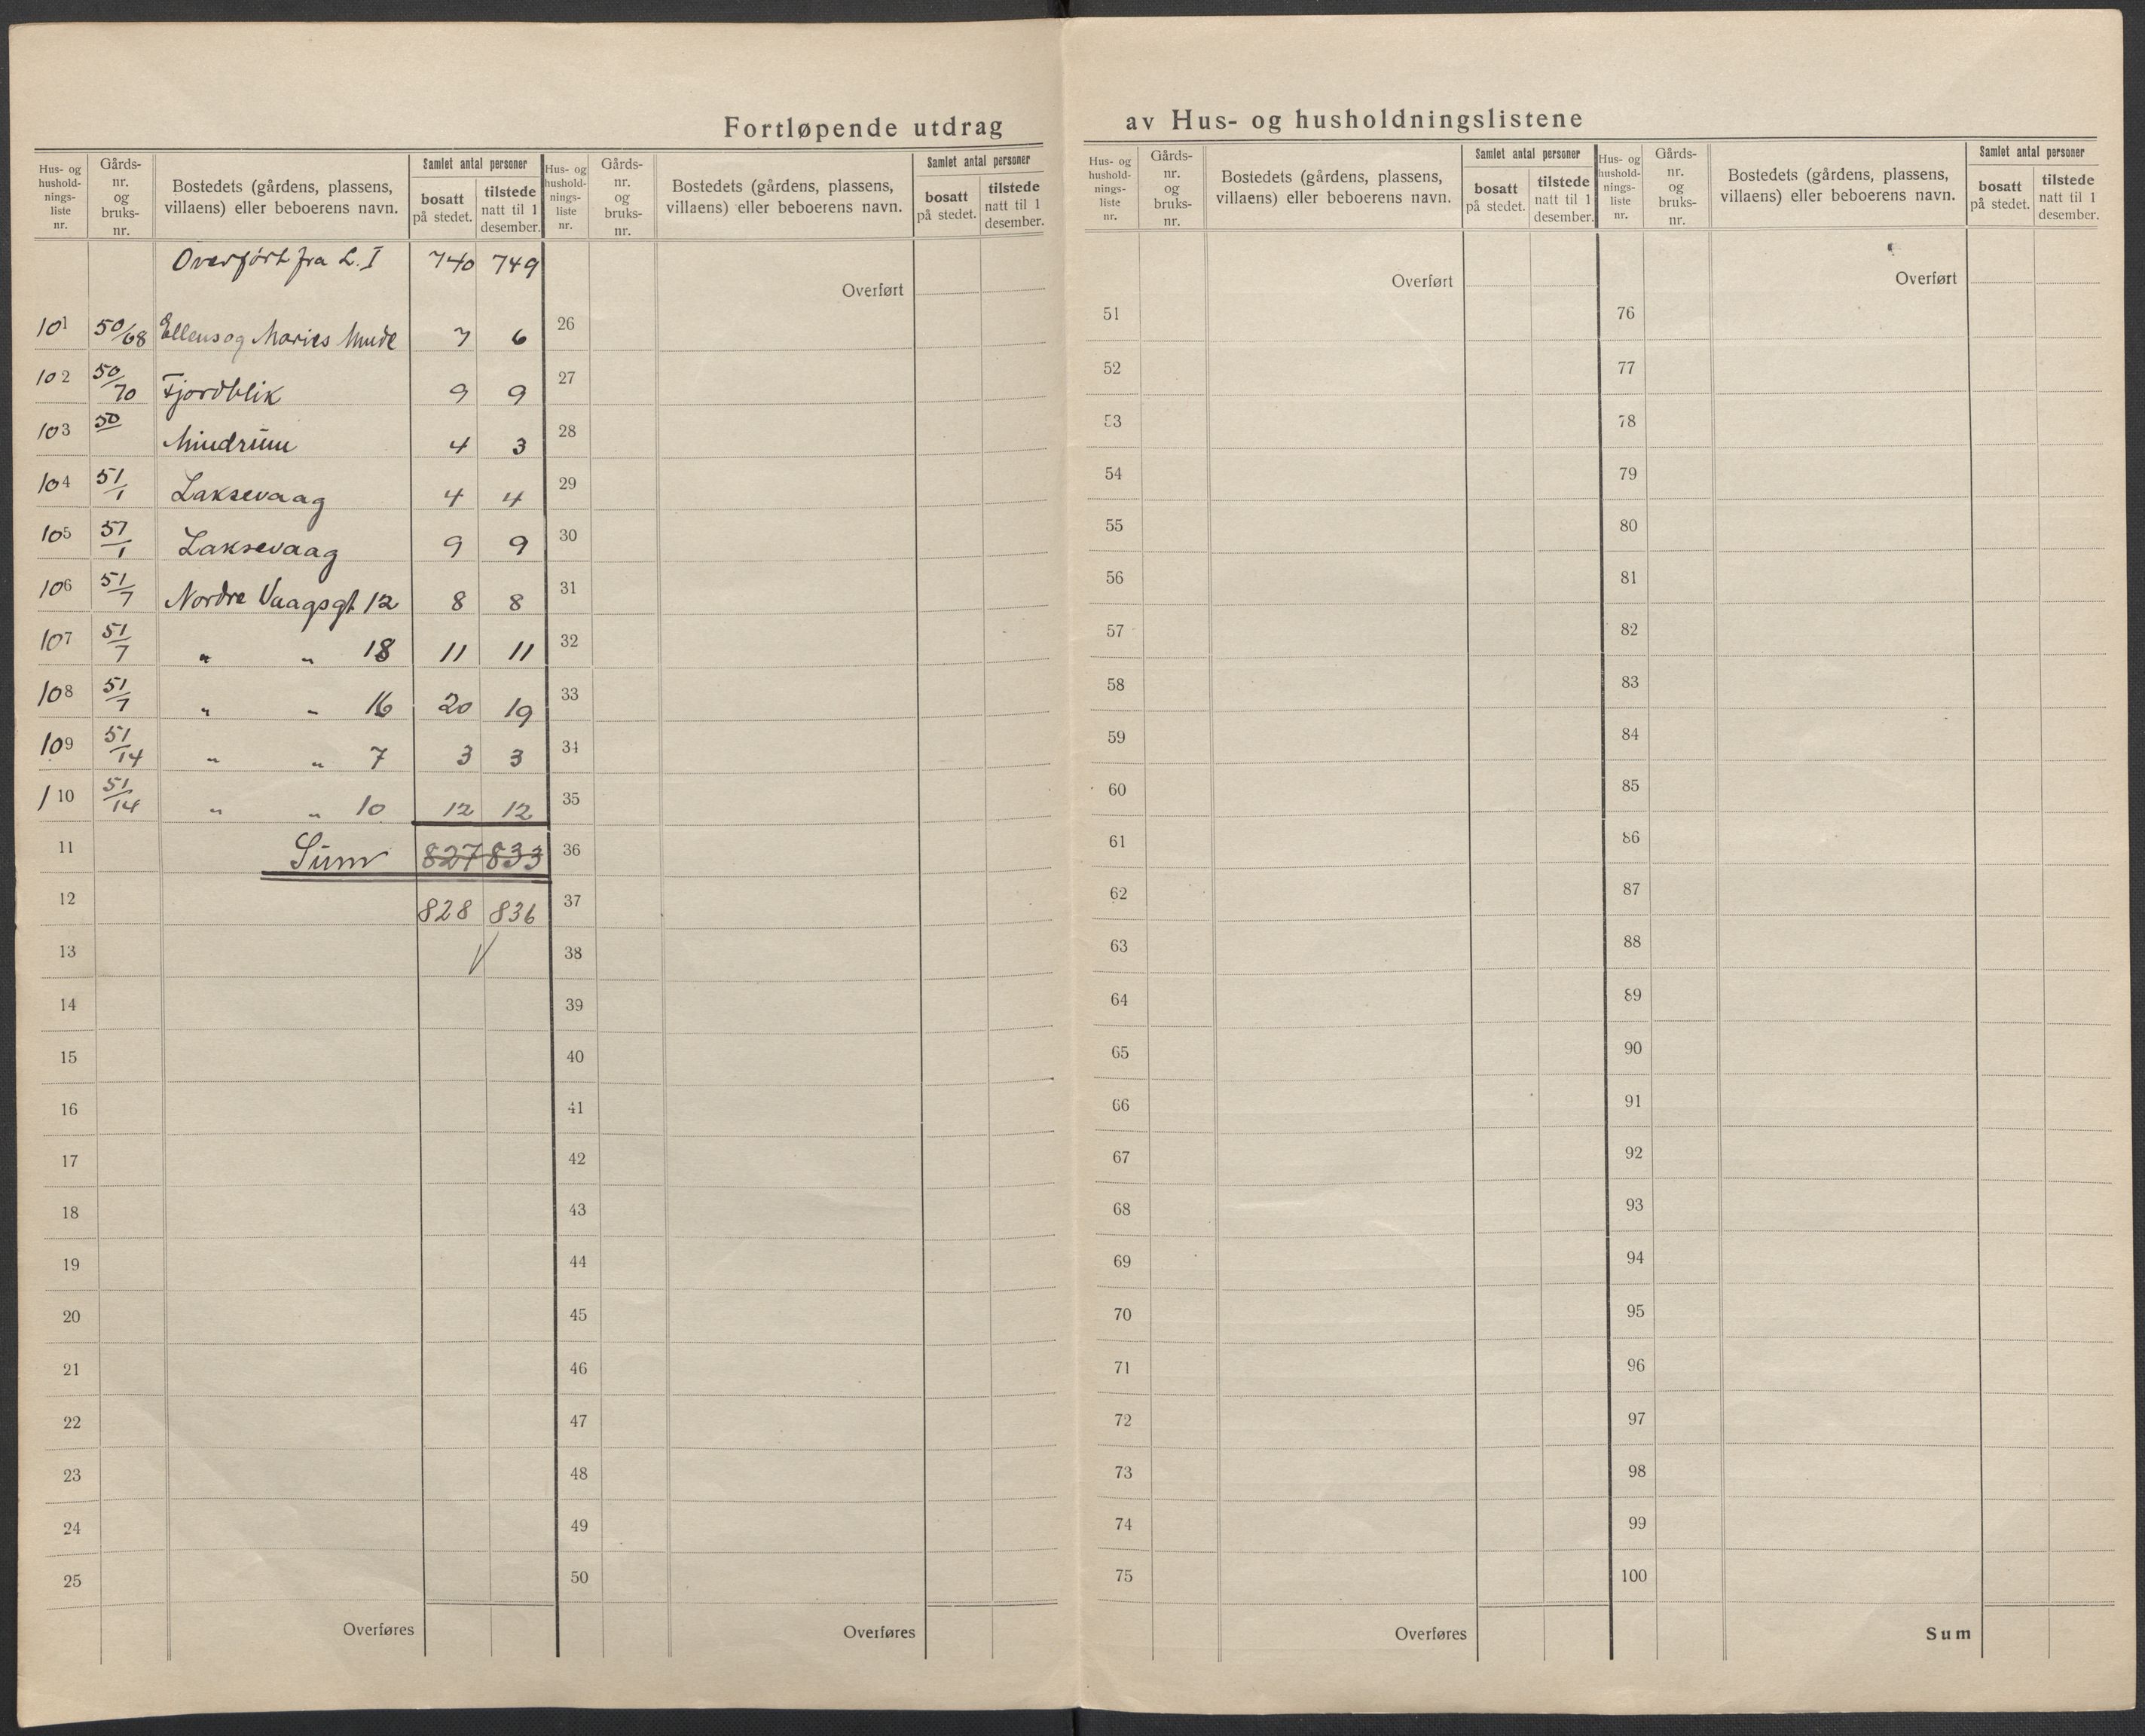 Fortløpende utdrag av Hus- og husholdningslistene
Hus- og husholdningsliste nr. | Gårdsnr. og bruksnr. | Bostedets (gårdens, plassens, villaens) eller beboerens navn. | Samlet antal personer | bosatt på stedet. | tilstede natt til 1 desember.
Overført fra L. I 740 749
101 50/68 Ellens og Maries Minde 7 6
102 50/70 Fjordblik 9 9
103 50 Mindrum 4 3
104 51/1 Laksevaag 4 4
105 51/1 Laksevaag 9 9
106 51/7 Nordre Vaagsgt 12 8 8
107 51/7 " " 18 11 11
108 51/7 " " 16 20 19
109 51/14 " " 7 3 3
110 51/14 " " 10 12 12
11 Sum 827 833
12 828 836
13
14
15
16
17
18
19
20
21
22
23
24
25
Overføres
Hus- og husholdningsliste nr. | Gårdsnr. og bruksnr. | Bostedets (gårdens, plassens, villaens) eller beboerens navn. | Samlet antal personer | bosatt på stedet. | tilstede natt til 1 desember.
Overført
26
27
28
29
30
31
32
33
34
35
36
37
38
39
40
41
42
43
44
45
46
47
48
49
50
Overføres
Hus- og husholdningsliste nr. | Gårdsnr. og bruksnr. | Bostedets (gårdens, plassens, villaens) eller beboerens navn. | Samlet antal personer | bosatt på stedet. | tilstede natt til 1 desember.
Overført
51
52
53
54
55
56
57
58
59
60
61
62
63
64
65
66
67
68
69
70
71
72
73
74
75
Overføres
Hus- og husholdningsliste nr. | Gårdsnr. og bruksnr. | Bostedets (gårdens, plassens, villaens) eller beboerens navn. | Samlet antal personer | bosatt på stedet. | tilstede natt til 1 desember.
Overført
76
77
78
79
80
81
82
83
84
85
86
87
88
89
90
91
92
93
94
95
96
97
98
99
100
Sum